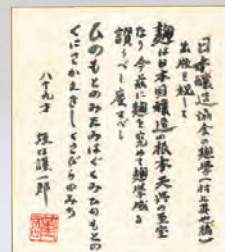 日本醸造協会の麹学(村上英也編)
出版を祝して
麹は日本国醸造の根本天与の至宝
なり 今茲に麹を究めて麹学成る
讃うべし慶すべし
ひのもとのみたみはぐくみひのもとの
くにさかえきしくさびらのみち
八十九才
坂口謹一郎